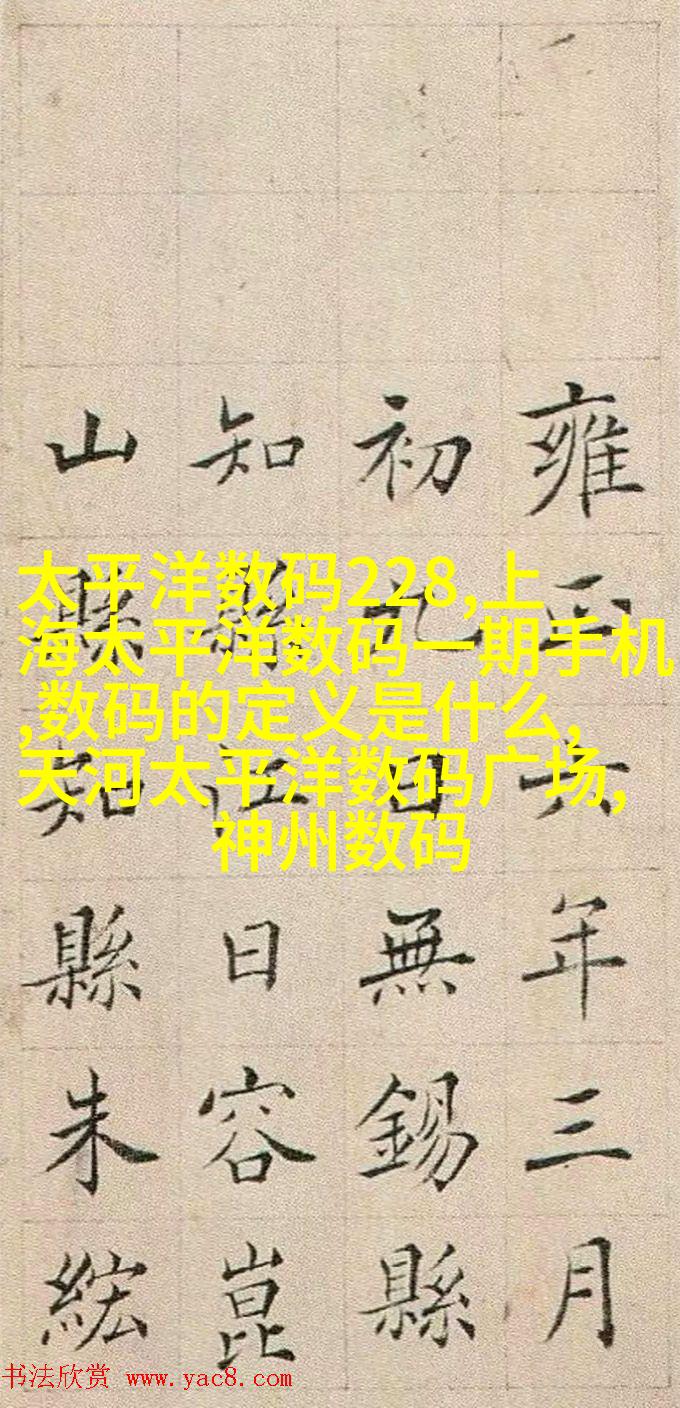 雍正六年三月
初九日無錫縣
知縣江日容崑
山縣知縣朱綋
太平洋数码228,上
海太平洋数码一期手机
,数码的定义是什么,
天河太平洋数码广场,
神州数码
书法欣赏 www.yac8.com